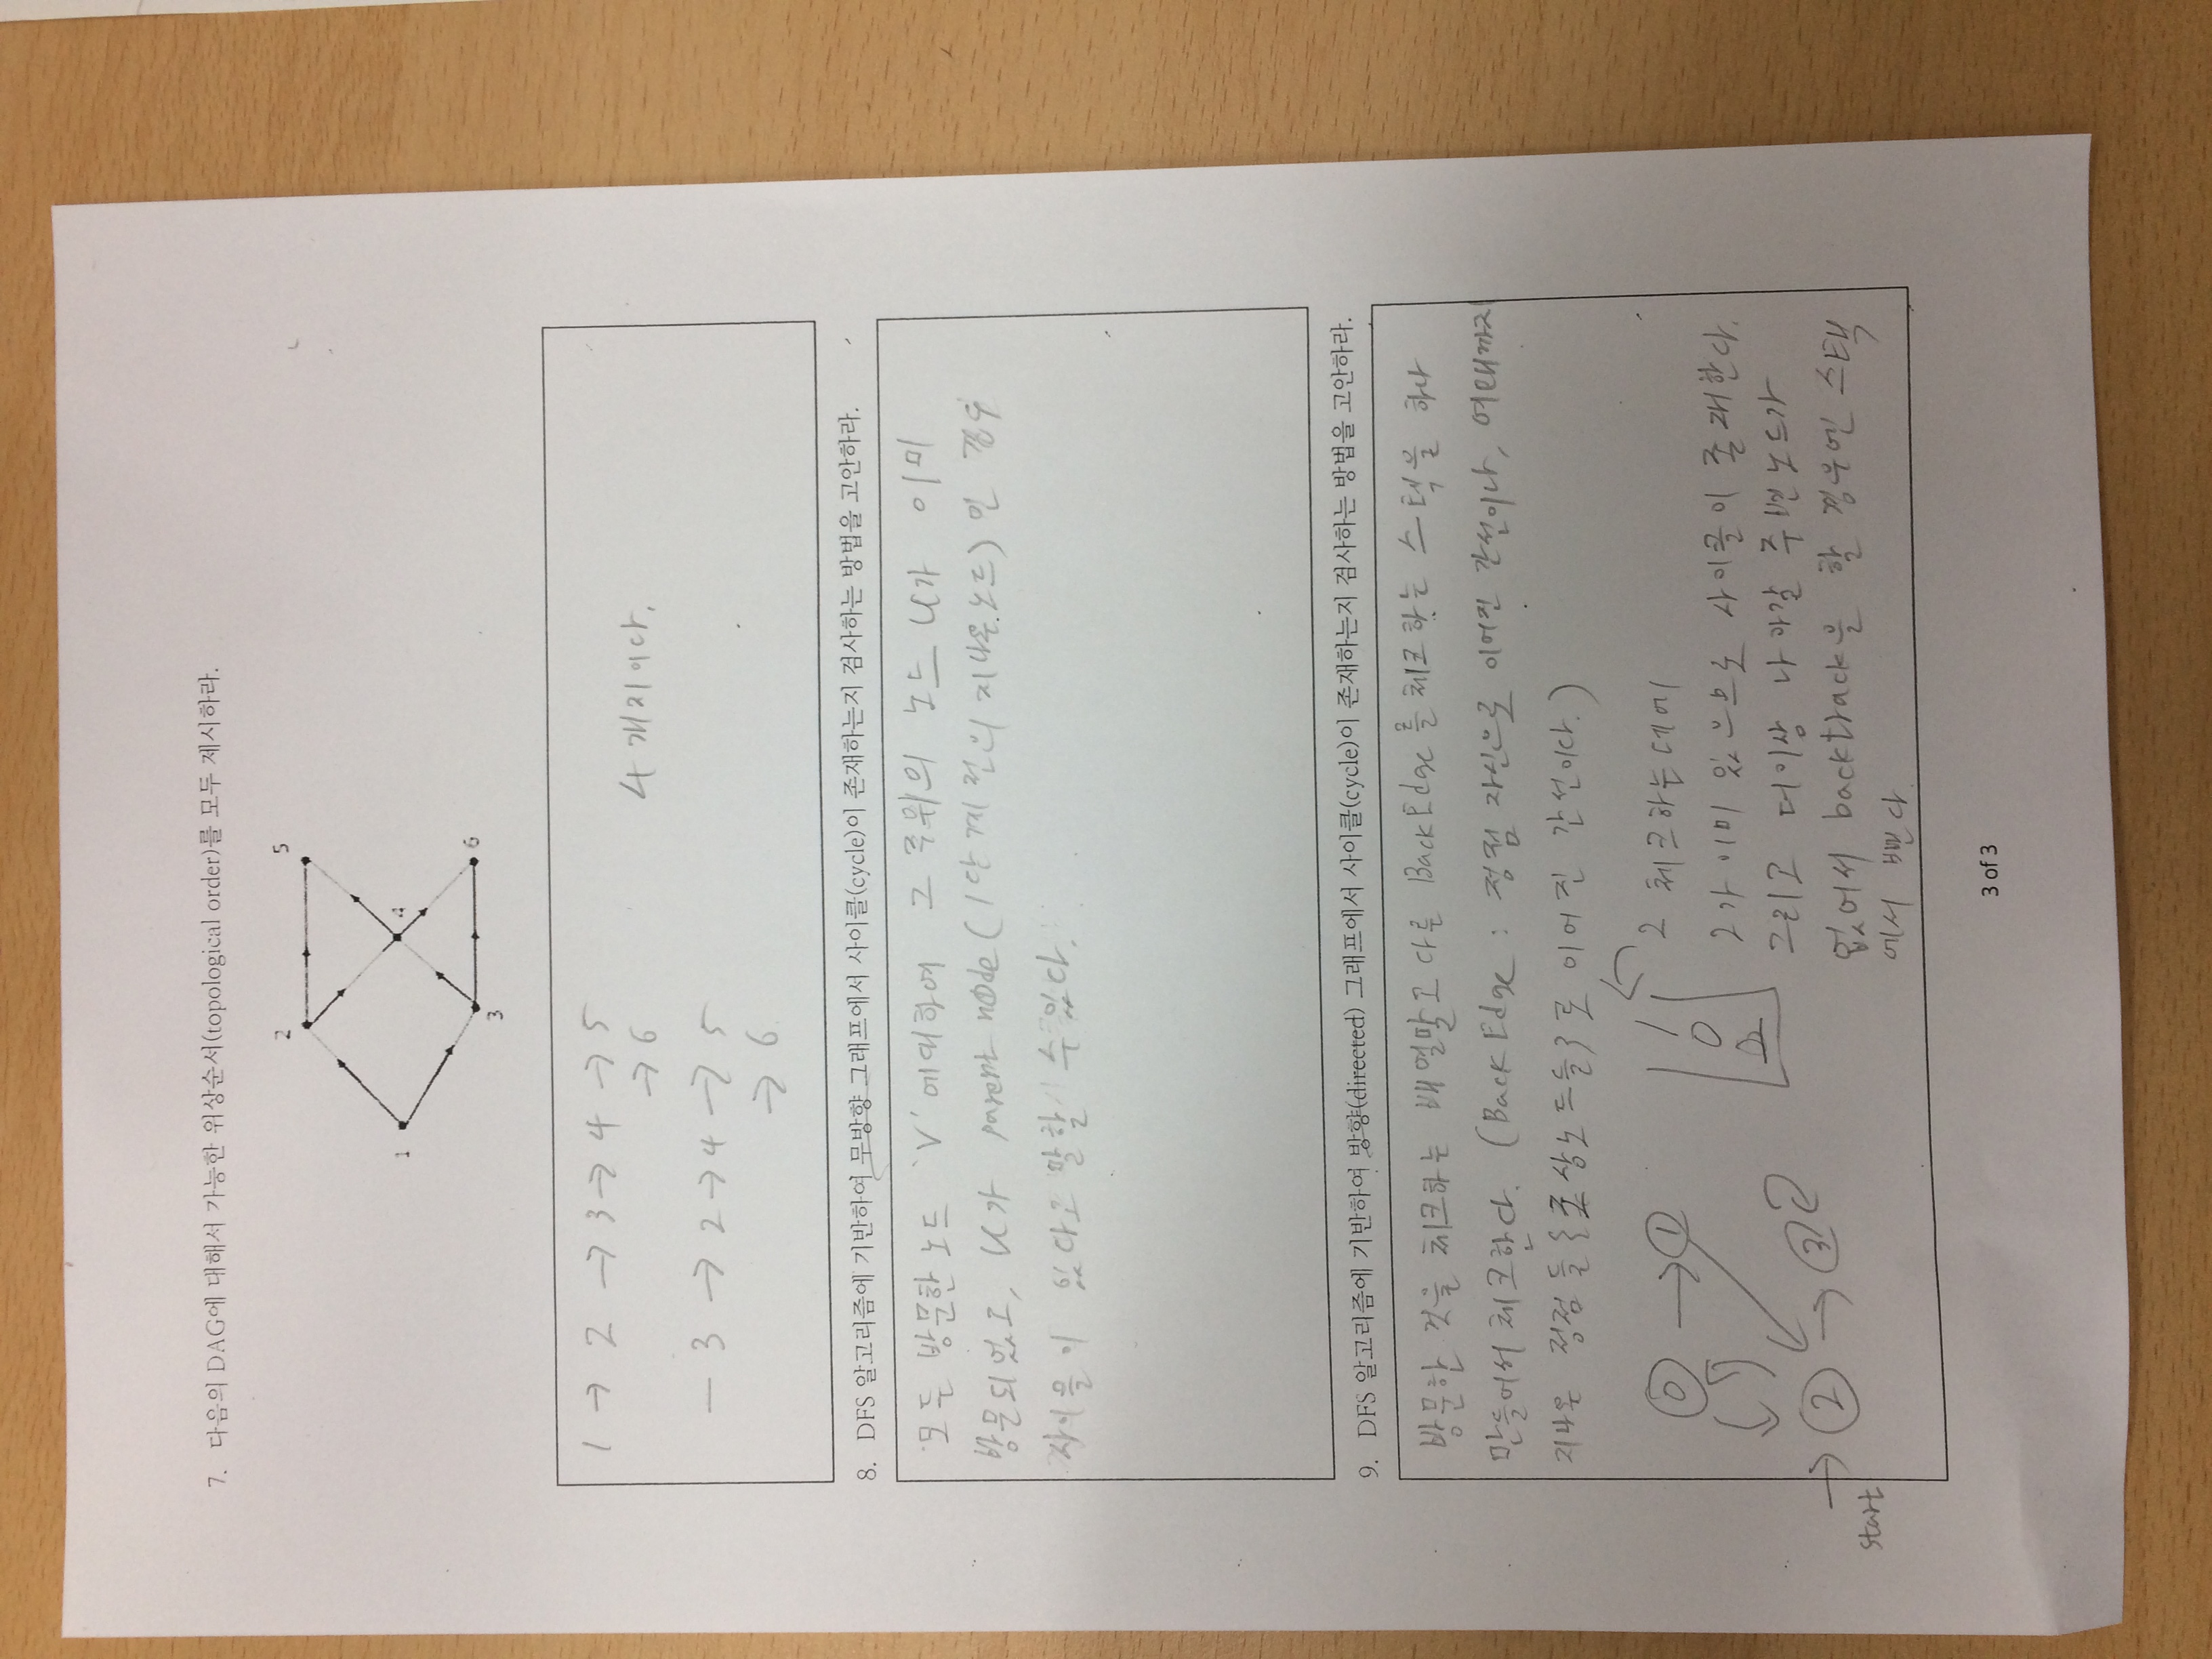 7. 다음의 DAG에 대해서 가능한 위상순서(topological order)를 모두 제시하라.
2 5
1 4
3 6
1 → 2 → 3 → 4 → 5
→ 6
4개지이다.
— 3 → 2 → 4 → 5
→ 6
8. DFS 알고리즘에 기반하여 무방향 그래프에서 사이클(cycle)이 존재하는지 검사하는 방법을 고안하라.
모두 방문한 노드 'V'에대하여 그 주위의 노드 U가 이미
방문되었고, U가 parent node (1단계 전의 지나온 노드) 인 경우
싸이클이 있다고 말할 수 있다.
9. DFS 알고리즘에 기반하여 방향(directed) 그래프에서 사이클(cycle)이 존재하는지 검사하는 방법을 고안하라.
방문한 것을 체크하는 배열말고 다른 BackEdge를 체크하는 스택을 하나
만들어서 체크한다. (Back Edge : 정점 자신으로 이어진 간선이나, 여때까지
지나온 정점들{조상노드들}로 이어진 간선이다.)
0 → 1
1
0
2
2 체크하는데에
2가 이미 있으므로 사이클이 존재한다.
그리고 더이상 나아갈 주변노드가
start → 2 → 3
없어서 backtrack을 할 경우엔 스택
에서 뺀다.
3 of 3